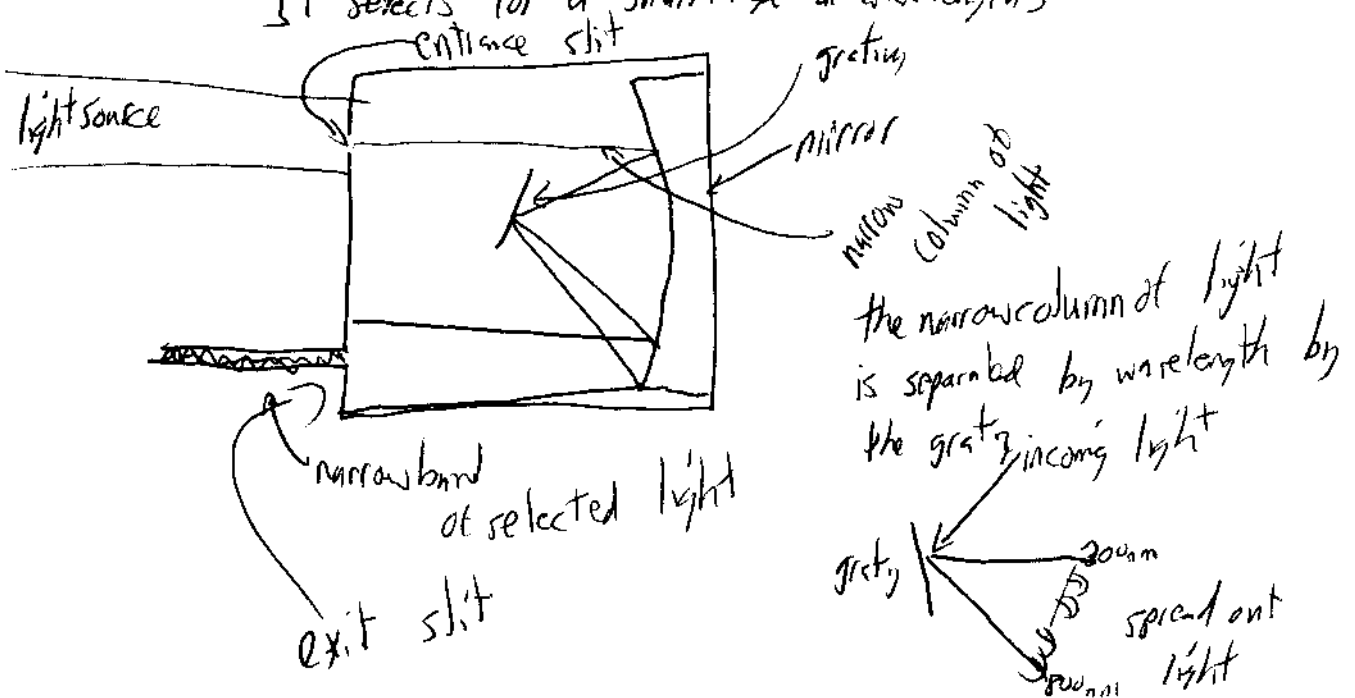 It selects for a small range of wavelengths
entrance slit
grating
light source
mirror
narrow
column of
light
the narrow column of light
is separated by wavelength by
the grating
incoming light
narrow band
of selected light
exit slit
grating
200nm
spread out
light
800nm